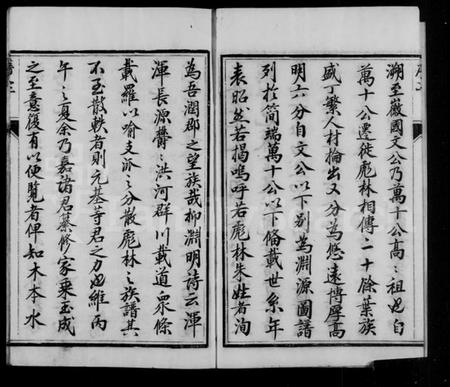 溯至徽國文公乃萬十公高〻祖也自
萬十公遷徙彪林相傳二十餘葉族
盛丁繁人材掄出又分為悠遠博厚高
明六分自文公以下別為淵源圖譜
列於簡端萬十公以下備載世系年
表昭然若揭嗚呼若彪林朱姓者洵
為吾潤郡之望族哉抑淵明詩云渾
渾長源鬱〻洪河群川載道眾條
載羅以喻支派之分散彪林之族譜其
不至散軼者則元基等君之力也維丙
午之夏余乃嘉諸君纂修家乘玉成
之至意復有以使覽者俾知木本水